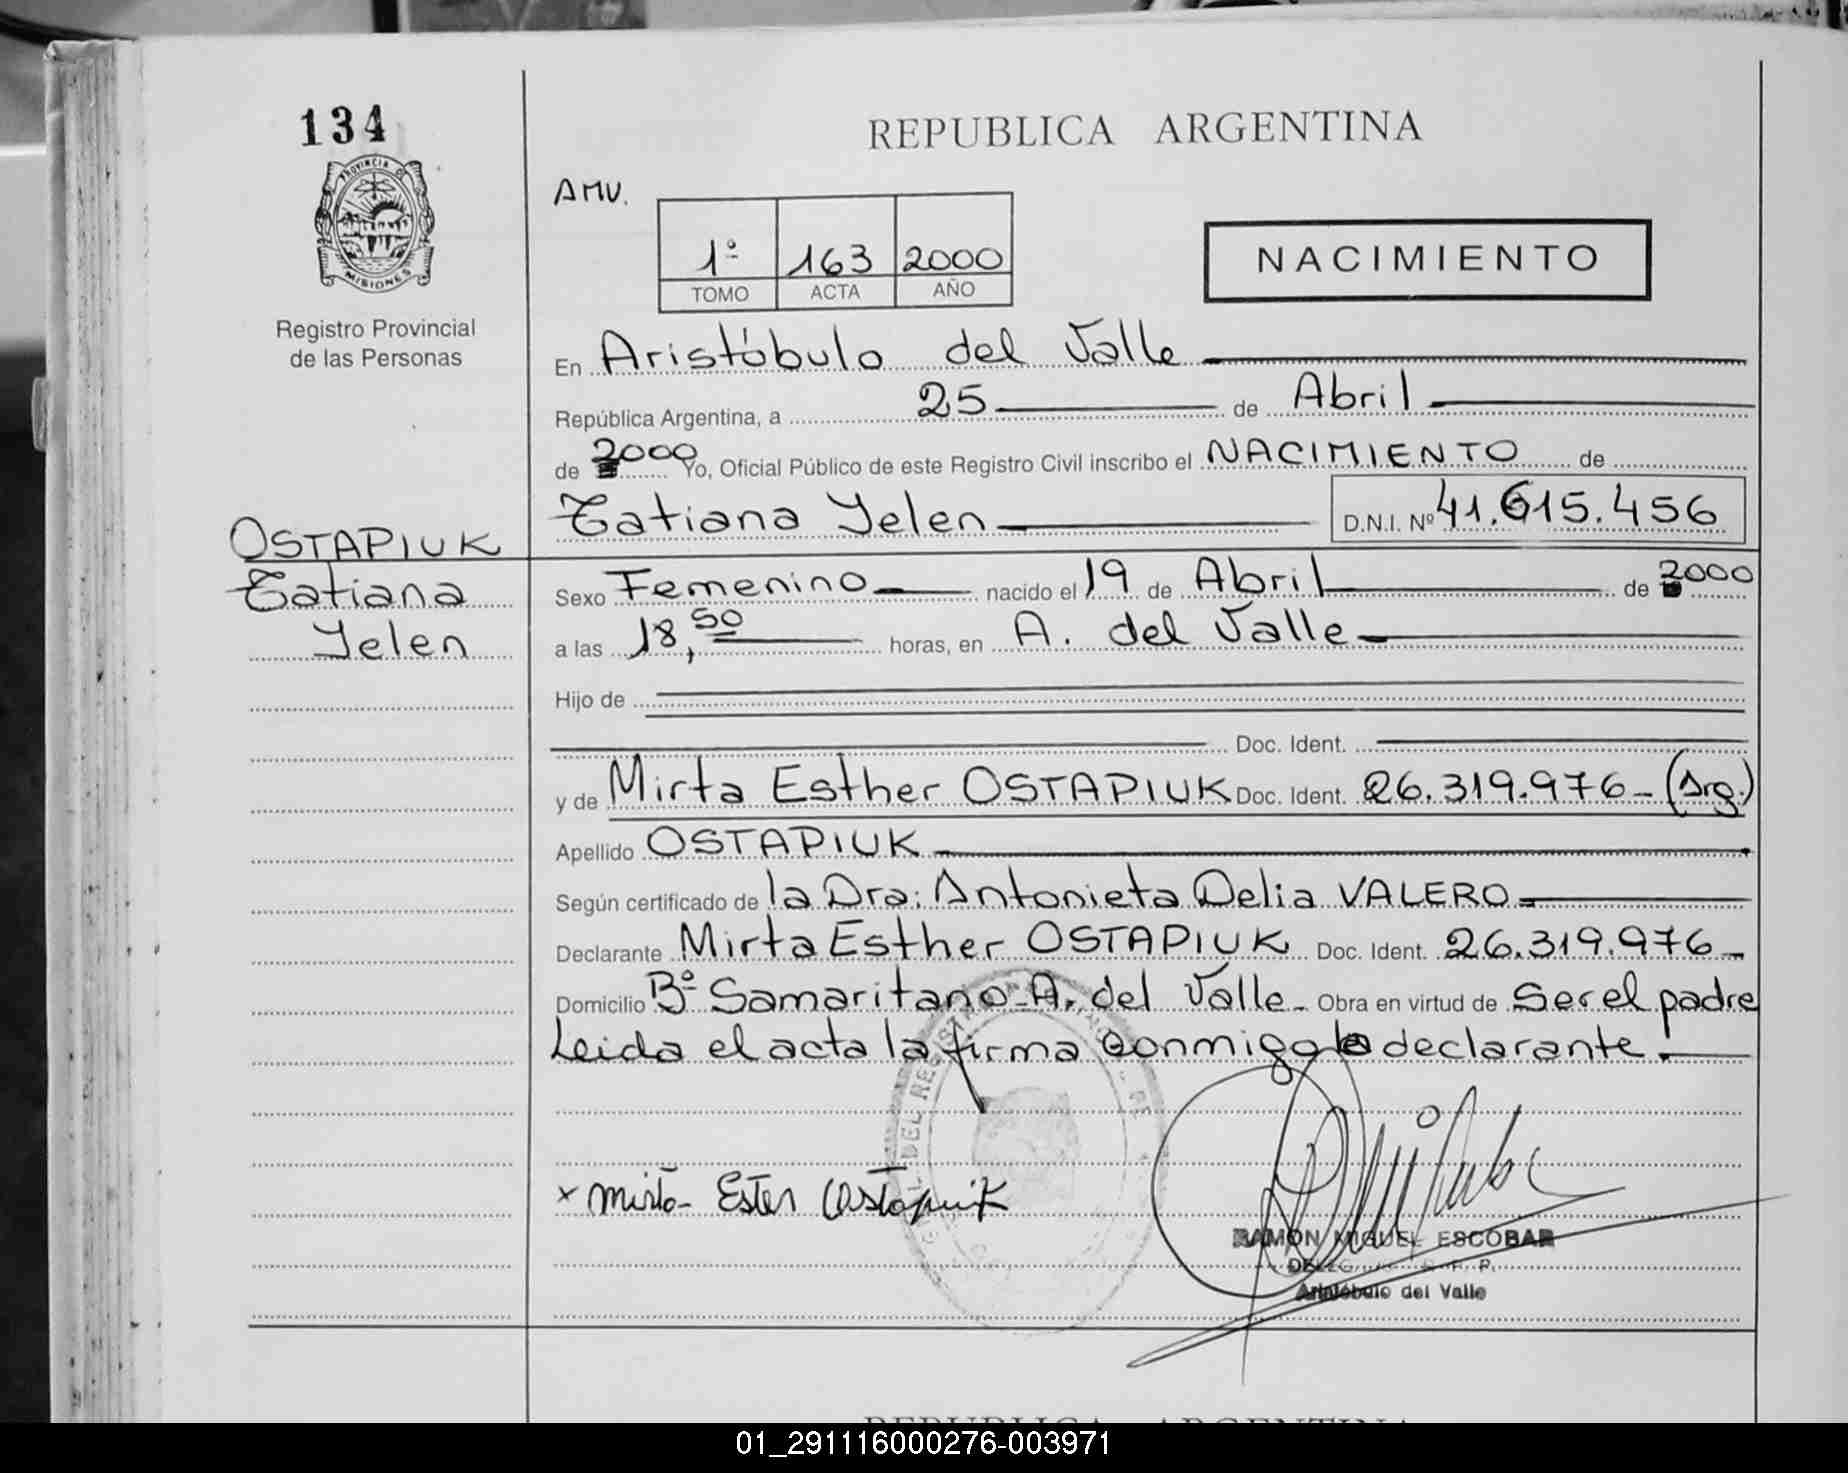 134
PROVINCIA DE
MISIONES
Registro Provincial
de las Personas
REPUBLICA ARGENTINA
AMV.
1º 163 2000
TOMO ACTA AÑO
NACIMIENTO
En Aristóbulo del Valle
República Argentina, a 25 de Abril
de 2000 Yo, Oficial Público de este Registro Civil inscribo el NACIMIENTO de
Tatiana Yelen D.N.I. Nº 41.615.456
OSTAPIUK
Tatiana
Yelen
Sexo Femenino nacido el 19 de Abril de 2000
a las 18,50 horas, en A. del Valle
Hijo de
Doc. Ident.
y de Mirta Esther OSTAPIUK Doc. Ident. 26.319.976- (Arg.)
Apellido OSTAPIUK
Según certificado de la Dra: Antonieta Delia VALERO
Declarante Mirta Esther OSTAPIUK Doc. Ident. 26.319.976-
Domicilio Bº Samaritano-A. del Valle- Obra en virtud de Ser el padre
Leida el acta la firma conmigo la declarante.
DEL REGISTRO
x Mirta- Ester Ostapiuk
RAMON MIGUEL ESCOBAR
Aristóbulo del Valle
REPUBLICA ARGENTINA
01_291116000276-003971